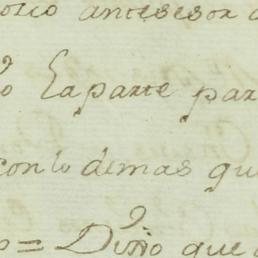 antesesor
o Laparte par
con lo demas qu
= Dỉho que